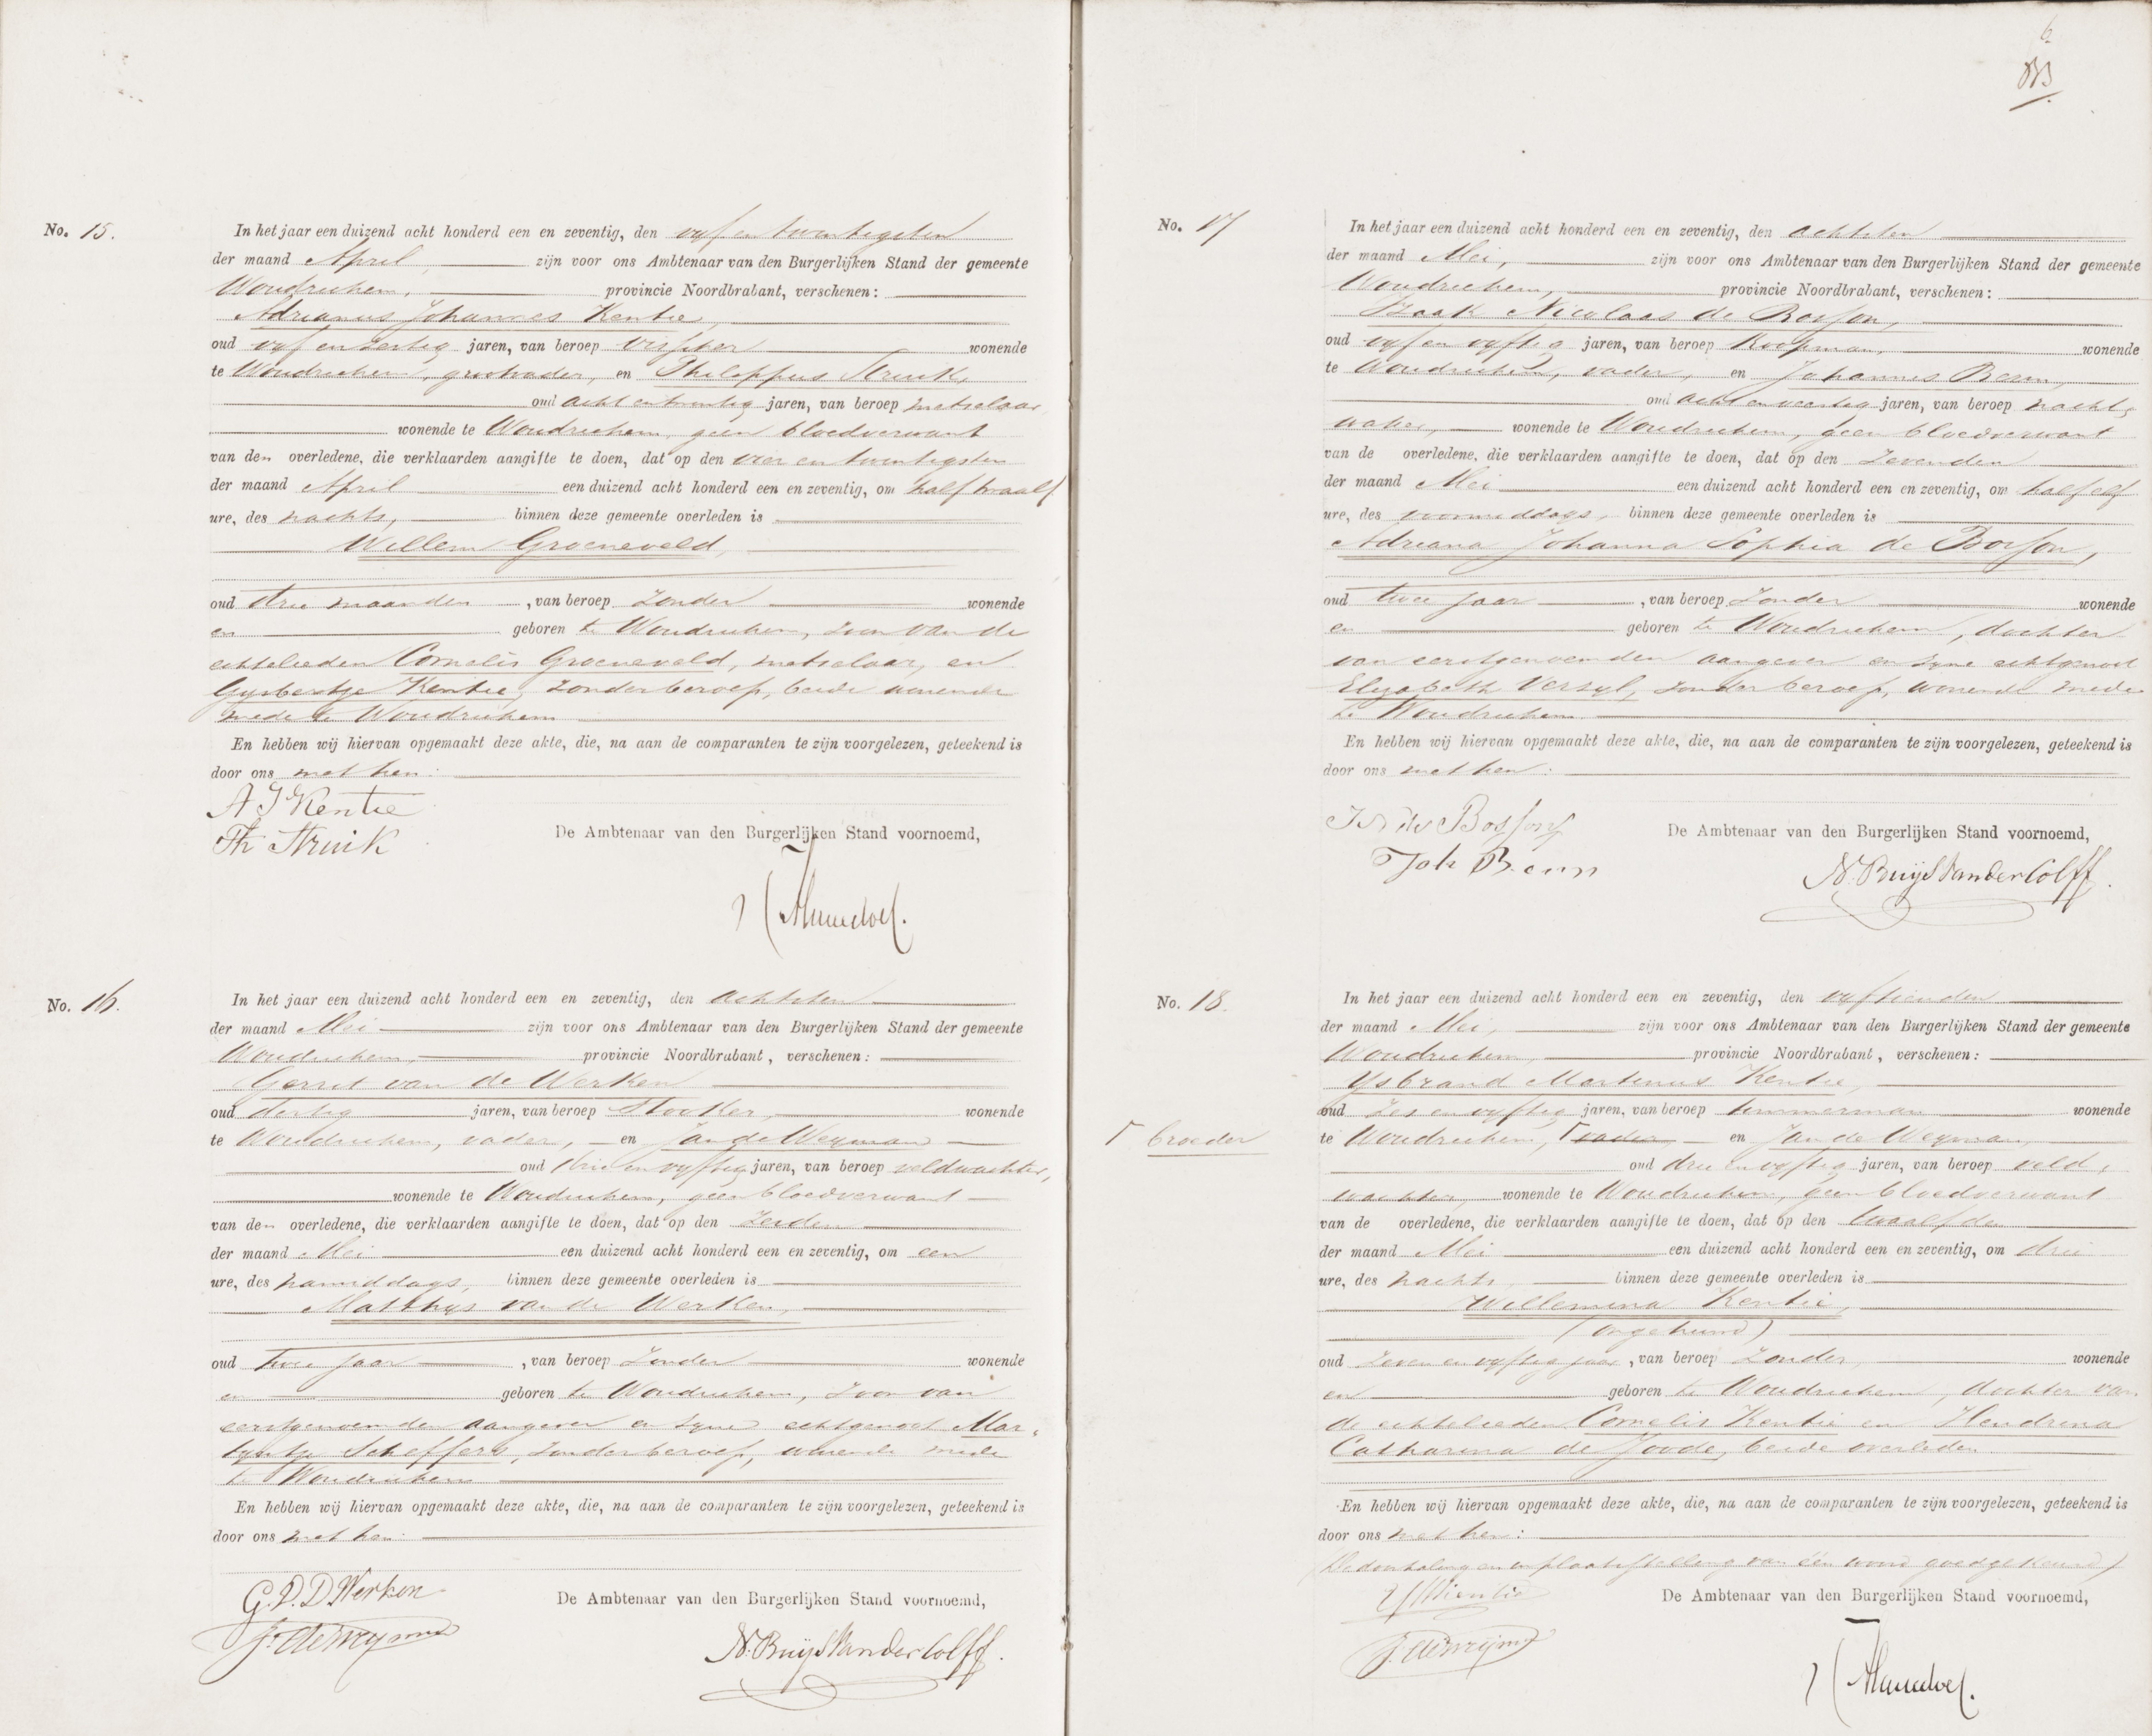 No. 15.
In het jaar een duizend acht honderd een en zeventig, den vyf en twentigsten
der maand April zijn voor ons Ambtenaar van den Burgerlijken Stand der gemeente
Woudrichem, provincie Noordbrabant, verschenen:
Adrianus Johannes Kentie,
oud vyf en zestig jaren, van beroep visscher wonende
te Woudrichem, grootvader, en Philippus Struik,
oud acht en twintig jaren, van beroep metselaar
wonende te Woudrichem, geen bloedverwant
van den overledene, die verklaarden aangifte te doen, dat op den vier en twentigsten
der maand April een duizend acht honderd een en zeventig, om half twaalf
ure, des nachts, binnen deze gemeente overleden is
Willem Groeneveld,
oud drie maanden, van beroep zonder wonende
en geboren te Woudrichem, zoon van de
echtelieden Cornelis Groeneveld, metselaar, en
Gysbertje Kentie, zonder beroep, beide wonende
mede te Woudrichem
En hebben wij hiervan opgemaakt deze akte, die, na aan de comparanten te zijn voorgelezen, geteekend is
door ons met hen:
A J Kentie
Ph Struik
De Ambtenaar van den Burgerlijken Stand voornoemd,
No. 16.
In het jaar een duizend acht honderd een en zeventig, den achtsten
der maand Mei zijn voor ons Ambtenaar van den Burgerlijken Stand der gemeente
Woudrichem, provincie Noordbrabant, verschenen:
Gerrit van de Werken
oud dertig jaren, van beroep Stooker, wonende
te Woudrichem, vader, en Jan de Weyman
oud drie en vyftig jaren, van beroep veldwachter,
wonende te Woudrichem, geen bloedverwant
van den overledene, die verklaarden aangifte te doen, dat op den zesden
der maand Mei een duizend acht honderd een en zeventig, om een
ure, des namiddags, binnen deze gemeente overleden is
Matthys van de Werken,
oud twee jaar, van beroep zonder wonende
en geboren te Woudrichem, zoon van
eerstgenoemden aangever en zyne echtgenoot Mar,
tyntje Scheffers, zonder beroep, wonende mede
te Woudrichem
En hebben wij hiervan opgemaakt deze akte, die, na aan de comparanten te zijn voorgelezen, geteekend is
door ons met hen:
G. V. D Werken
J. de Weyman
De Ambtenaar van den Burgerlijken Stand voornoemd,
N. Buijs van der Colff.
6
No. 17
In het jaar een duizend acht honderd een en zeventig, den achtsten
der maand Mei, zijn voor ons Ambtenaar van den Burgerlijken Stand der gemeente
Woudrichem, provincie Noordbrabant, verschenen:
Izaak Nicolaas de Bosson,
oud vyf en vyftig jaren, van beroep Koopman, wonende
te Woudrichem, vader, en Johannes Besem,
oud acht en veertig jaren, van beroep nacht,
waker, wonende te Woudrichem, geen bloedverwant
van de overledene, die verklaarden aangifte te doen, dat op den zevenden
der maand Mei een duizend acht honderd een en zeventig, om half elf
ure, des voormiddags, binnen deze gemeente overleden is
Adriana Johanna Sophia de Bosson,
oud twee jaar, van beroep zonder wonende
en geboren te Woudrichem, dochter
van eerstgenoemden aangever en zyne echtgenoot
Elizabeth Versyl, zonder beroep, wonende mede
te Woudrichem.
En hebben wij hiervan opgemaakt deze akte, die, na aan de comparanten te zijn voorgelezen, geteekend is
door ons met hen:
De Ambtenaar van den Burgerlijken Stand voornoemd,
N. Buijs van der Colff.
No. 18.
In het jaar een duizend acht honderd een en zeventig, den vyftienden
der maand Mei, zijn voor ons Ambtenaar van den Burgerlijken Stand der gemeente
Woudrichem, provincie Noordbrabant, verschenen:
Ysbrand Martinus Kentie,
oud zes en vyftig jaren, van beroep timmerman wonende
broeder
te Woudrichem, vader en Jan de Weyman,
oud drie en vyftig jaren, van beroep veld,
wachter, wonende te Woudrichem, geen bloedverwant
van de overledene, die verklaarden aangifte te doen, dat op den twaalfden
der maand Mei een duizend acht honderd een en zeventig, om drie
ure, des nachts, binnen deze gemeente overleden is
Willemina Kentie,
(ongehuwd)
oud zeven en vyftig jaar, van beroep zonder, wonende
en geboren te Woudrichem, dochter van
de echtelieden Cornelis Kentie en Hendrina
Catharina de Joode, beide overleden.
En hebben wij hiervan opgemaakt deze akte, die, na aan de comparanten te zijn voorgelezen, geteekend is
door ons met hen:
(De doorhaling en inplaatsstelling van één woord goedgekeurd)
De Ambtenaar van den Burgerlijken Stand voornoemd,